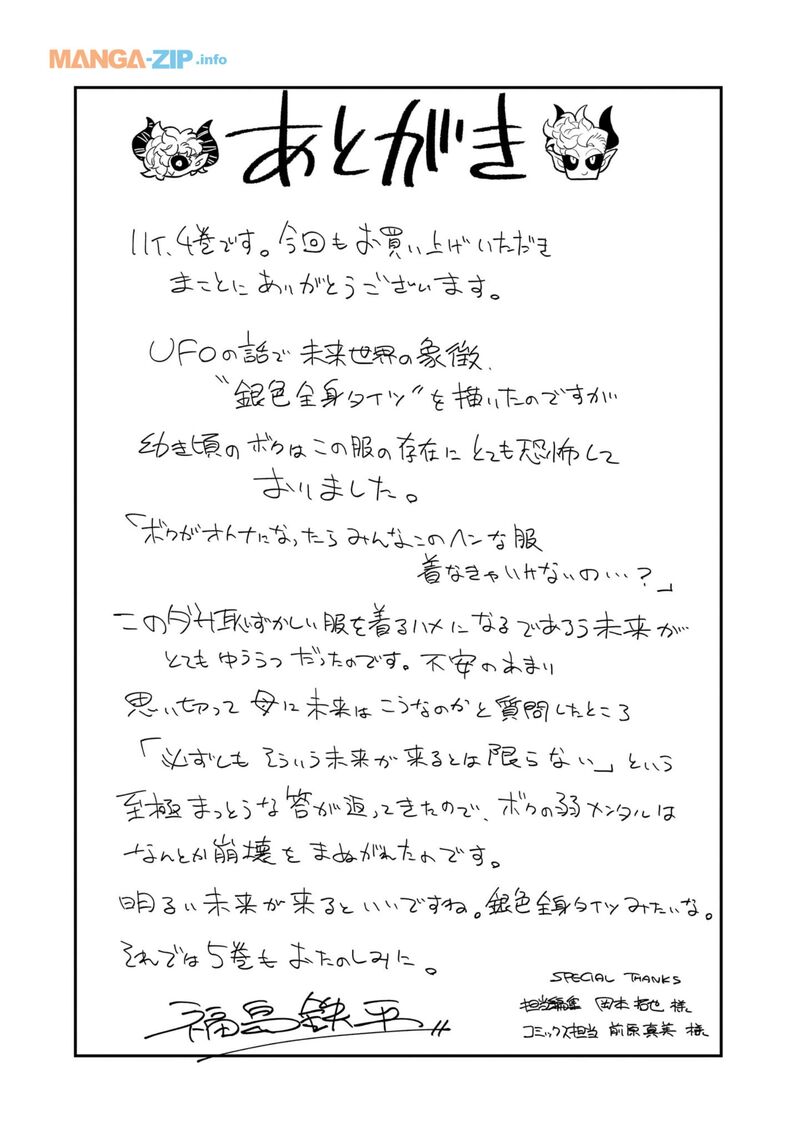 MANGA-ZIP.info
あとがき
ハイ、4巻です。今回もお買い上げいただき
まことにありがとうございます。
UFOの話で未来世界の象徴、
"銀色全身タイツ"を描いたのですが
幼き頃のボクはこの服の存在にとても恐怖して
おりました。
「ボクがオトナになったらみんなこのヘンな服
着なきゃいけないの…?」
このダサ恥ずかしい服を着るハメになるであろう未来が
とてもゆううつだったのです。不安のあまり
思い切って母に未来はこうなのかと質問したところ
「必ずしもそういう未来が来るとは限らない」という
至極まっとうな答が返ってきたので、ボクの弱メンタルは
なんとか崩壊をまぬがれたのです。
明るい未来が来るといいですね。銀色全身タイツみたいな。
それでは5巻もおたのしみに。
福島鉄平
SPECIAL THANKS
担当編集 岡本拓也 様
コミックス担当 前原真美 様